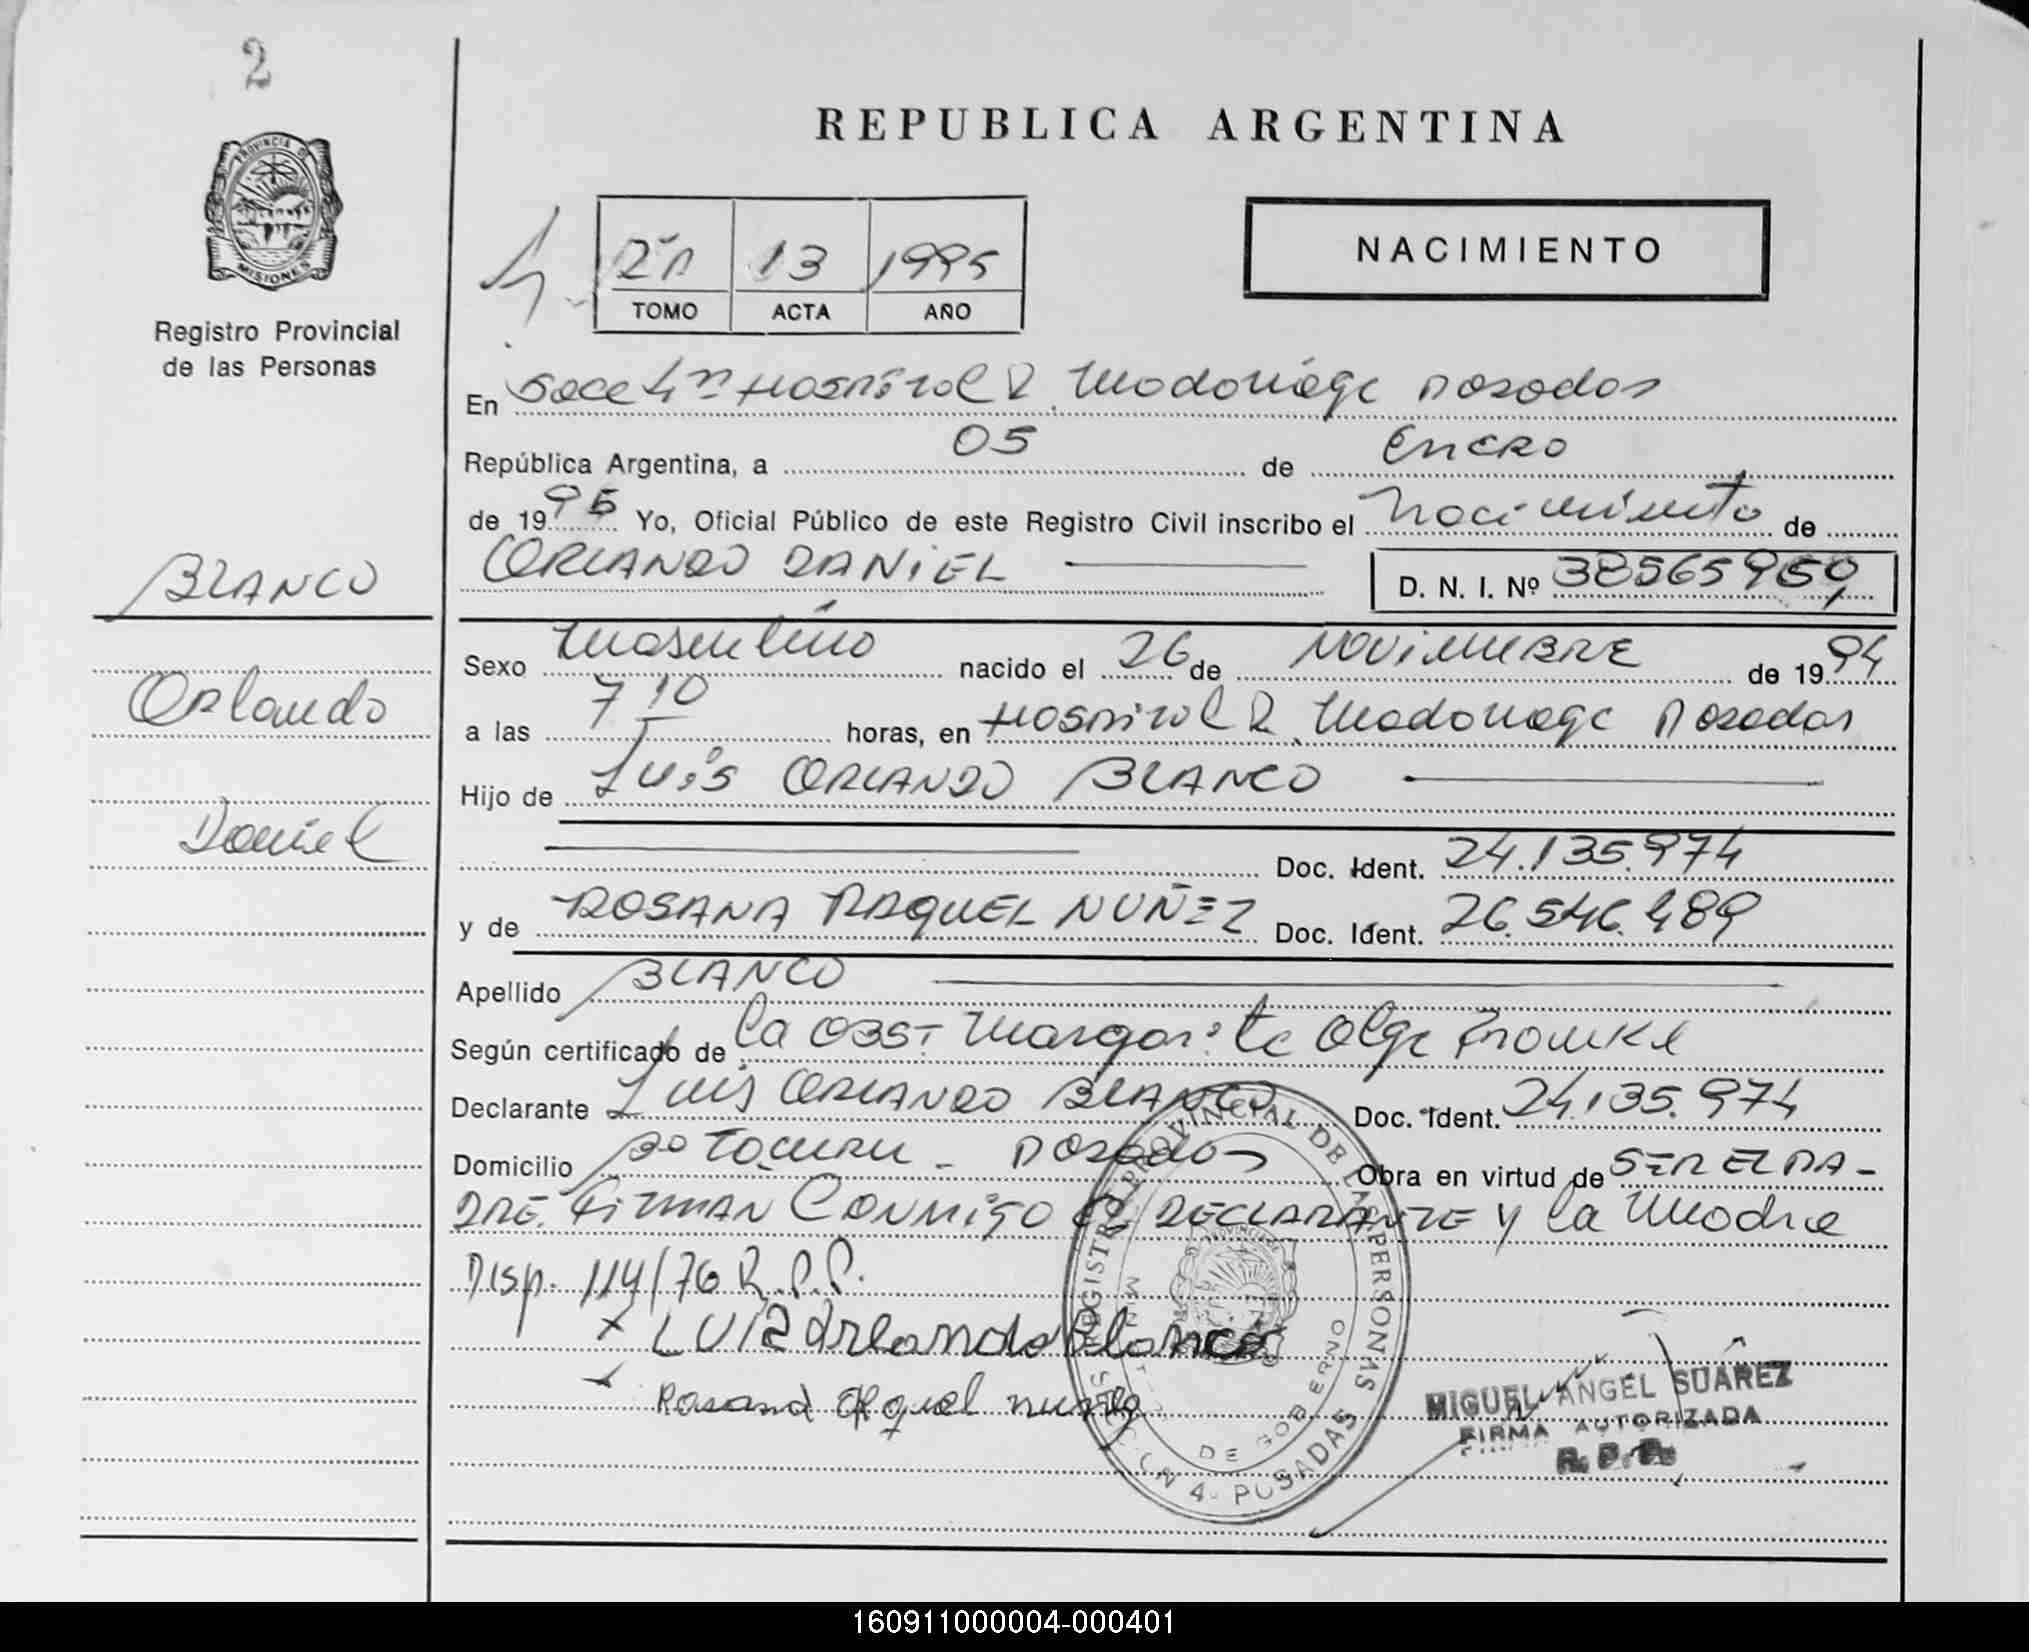 2
PROVINCIA DE
MISIONES
Registro Provincial
de las Personas
REPUBLICA ARGENTINA
13 1995
TOMO ACTA AÑO
NACIMIENTO
En Secc 4ª Hospital R. Madariaga Posadas
República Argentina, a 05 de Enero
de 1995 Yo, Oficial Público de este Registro Civil inscribo el Nacimiento de
ORLANDO DANIEL D. N. I. Nº 38565959
BLANCO
Orlando
Daniel
Sexo Masculino nacido el 26 de NOVIEMBRE de 1994
a las 7 10 horas, en Hospital R. Madariaga Posadas
Hijo de Luis ORLANDO BLANCO
Doc. Ident. 24.135.974
y de ROSANA RAQUEL NUÑEZ Doc. Ident. 26.546.489
Apellido BLANCO
Según certificado de la OBST. Margarita Olga
Declarante Luis ORLANDO BLANCO Doc. Ident. 24.135.974
Domicilio Bº Posadas Obra en virtud de SER EL PA-
DRE. FIRMAN CONMIGO EL DECLARANTE Y la Madre
Disp. 114/76 R.P.P.
x LUIS Orlando Blanco
Rosana Raquel nuñez
REGISTRO PROVINCIAL DE LAS PERSONAS
DE GOBERNO
4ª POSADAS
MIGUEL ANGEL SUÁREZ
FIRMA AUTORIZADA
R. P. P.
160911000004-000401